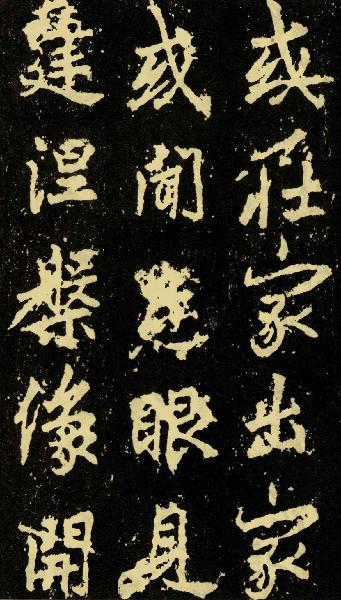 或莊家出家
或聞眼見
建涅槃像開